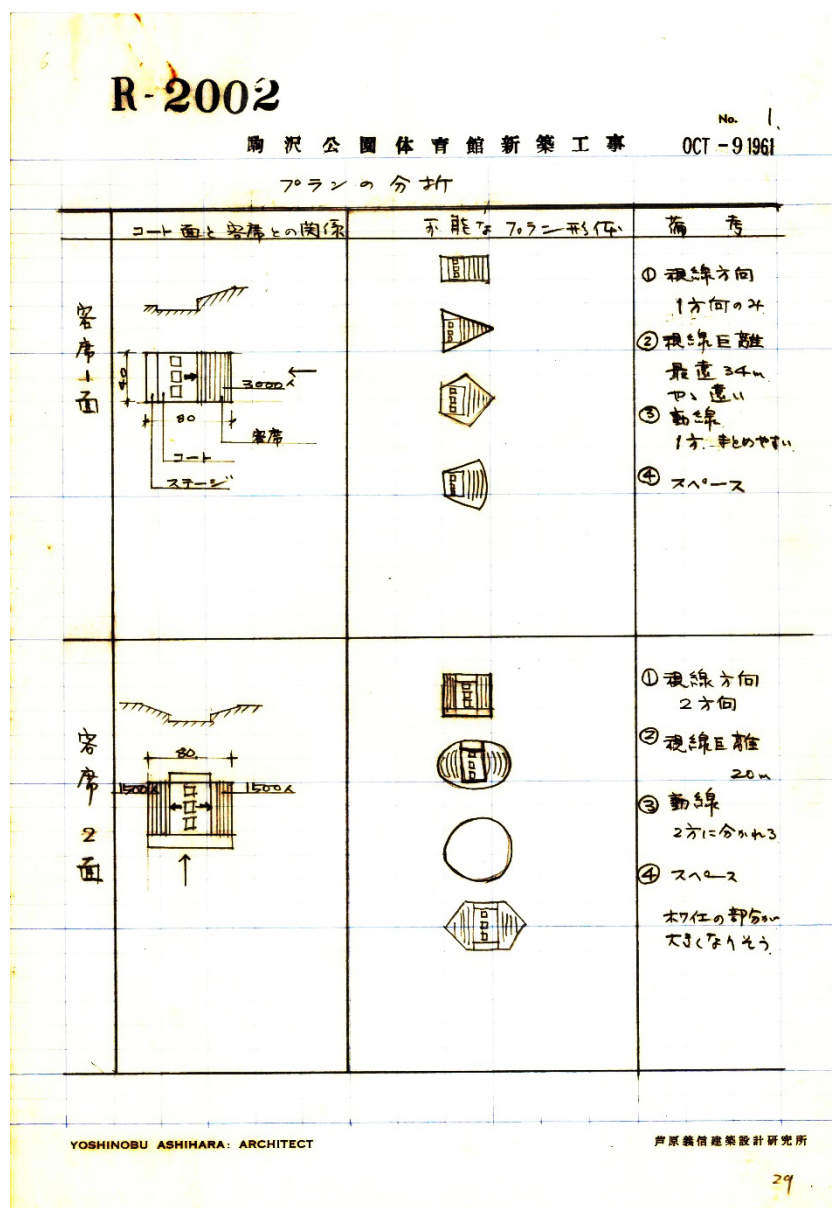 R-2002
No. 1.
駒沢公園体育館新築工事
OCT -9 1961
プランの分析
コート面と客席との関係
可能なプラン形体
備考
客席1面
40
80
3000人
客席
コート
ステージ
① 視線方向
1方向のみ
② 視線巨離
最遠34m
やゝ遠い
③ 動線
1方.まとめやすい
④ スペース
客席2面
80
1500人
1500人
① 視線方向
2方向
② 視線巨離
20m
③ 動線
2方に分かれる
④ スペース
ホワイエの部分が
大きくなりそう
YOSHINOBU ASHIHARA: ARCHITECT
芦原義信建築設計研究所
29